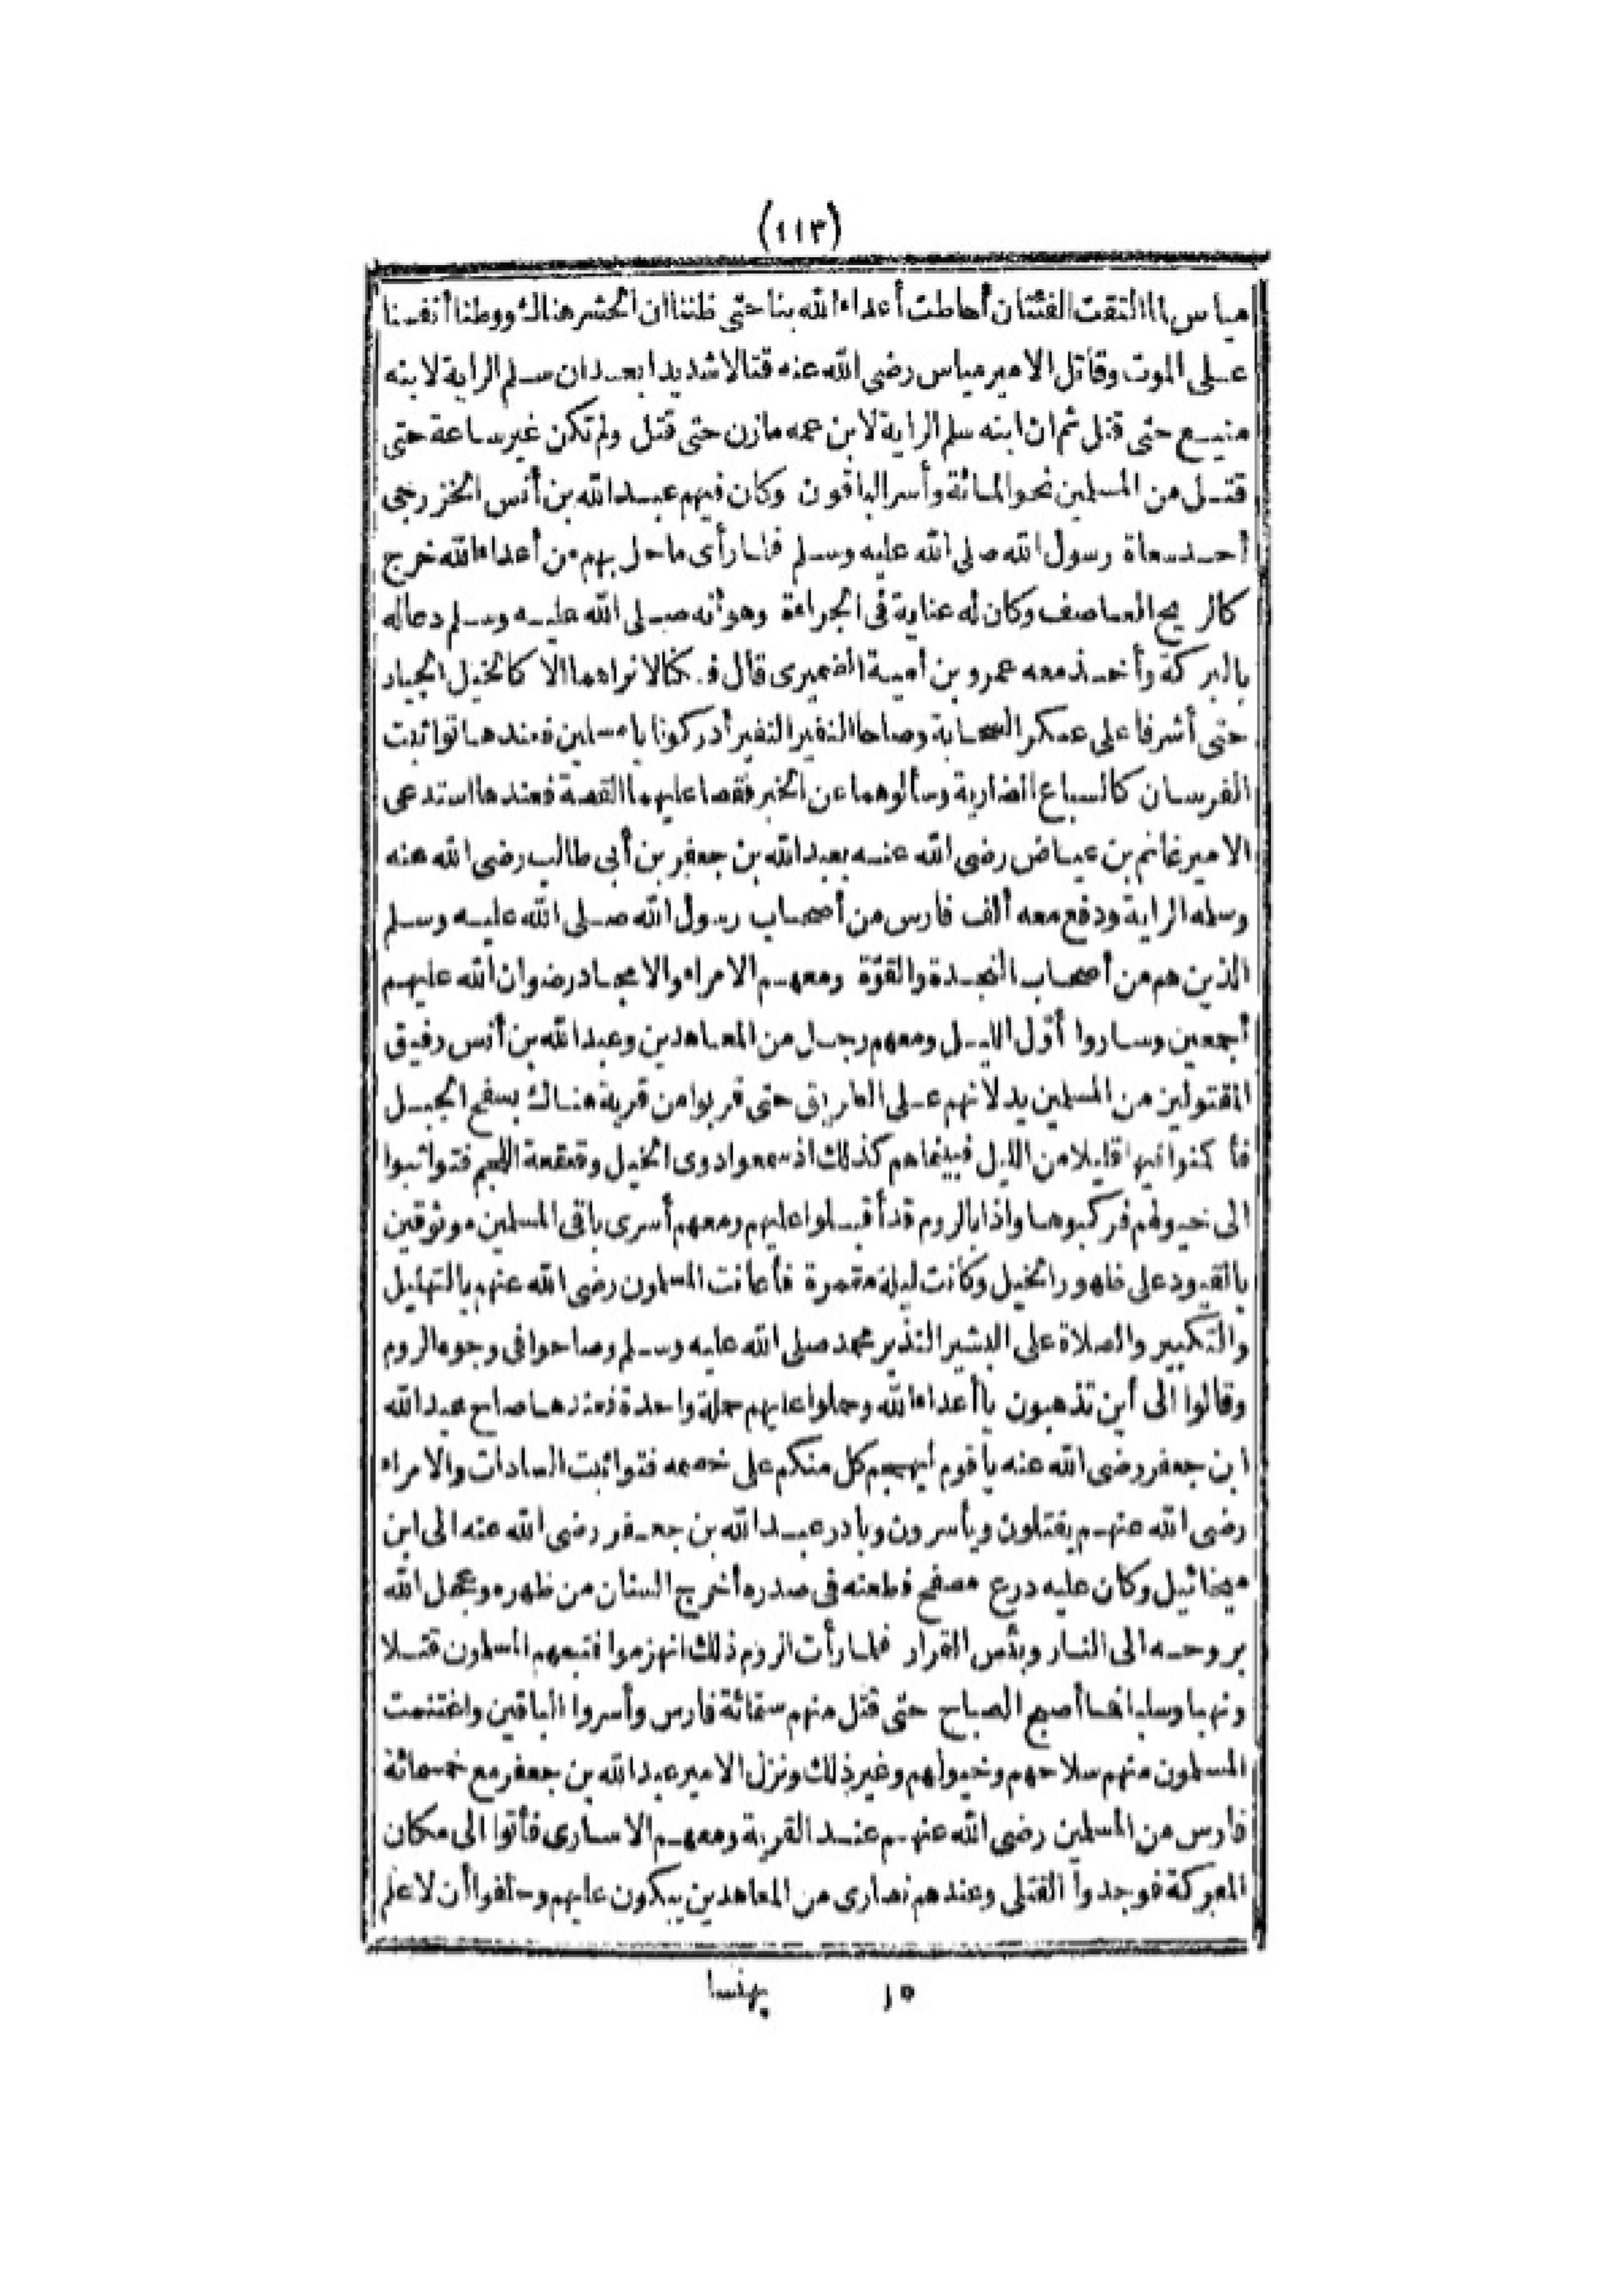 (١١٣)
مياس لما التقت الفئتان أحاطت أعداء الله بنا حتى ظننا ان الحشر هناك ووطنا أنفسنا
على الموت وقاتل الامير مياس رضى الله عنه قتالا شديدا بعد ان سلم الراية لابنه
منيع حتى قتل ثم ان ابنه سلم الراية لابن عمه مازن حتى قتل ولم تكن غير ساعة حتى
قتل من المسلمين نحو المائة وأسر الباقون وكان فيهم عبد الله بن أنس الخزرجى
أحد سعاة رسول الله صلى الله عليه وسلم فلما رأى ما حل بهم من أعداء الله خرج
كالريح العاصف وكان له عناية فى الجراءة وهو أنه صلى الله عليه وسلم دعا له
بالبركة وأخذ معه عمرو بن أمية الضميرى قال فكنا لا نراهما الا كالخيل الجياد
حتى أشرفا على عسكر الصحابة وصاحا النفير النفير أدركونا يا مسلمين فعندها تواثبت
الفرسان كالسباع الضارية وسألوهما عن الخبر فقصا عليهما القصة فعندها استدعى
الامير غانم بن عياض رضى الله عنه بعبد الله بن جعفر بن أبى طالب رضى الله عنه
وسلمه الراية ودفع معه ألف فارس من أصحاب رسول الله صلى الله عليه وسلم
الذين هم من أصحاب النجدة والقوّة ومعهم الامراء والامجاد رضوان الله عليهم
أجمعين وساروا أوّل الليل ومعهم رجل من المعاهدين وعبد الله بن أنس رفيق
المقتولين من المسلمين يدلانهم على الطريق حتى قربوا من قرية هناك بسفح الجبل
فأكمنوا فيها قليلا من الليل فبينما هم كذلك اذ سمعوا دوى الخيل وقعقعة اللجم فتواثبوا
الى خيولهم فركبوها واذا بالروم قد أقبلوا عليهم ومعهم أسرى باقى المسلمين موثوقين
بالقيود على ظهور الخيل وكانت ليلة مقمرة فأعلنت المسلمون رضى الله عنهم بالتهليل
والتكبير والصلاة على البشير النذير محمد صلى الله عليه وسلم وصاحوا فى وجوه الروم
وقالوا الى أين تذهبون يا أعداء الله وحملوا عليهم حملة واحدة فعندها صاح عبد الله
ابن جعفر رضى الله عنه يا قوم ليهجم كل منكم على خصمه فتواثبت السادات والامراء
رضى الله عنهم يقتلون ويأسرون وبادر عبد الله بن جعفر رضى الله عنه الى ابن
ميخائيل وكان عليه درع مصفح فطعنه فى صدره أخرج السنان من ظهره وعجل الله
بروحه الى النار وبئس القرار فلما رأت الروم ذلك انهزموا فتبعهم المسلمون قتلا
ونهبا وسلبا فما أصبح الصباح حتى قتل منهم ستمائة فارس وأسروا الباقين واغتنمت
المسلمون منهم سلاحهم وخيولهم وغير ذلك ونزل الامير عبد الله بن جعفر مع خمسمائة
فارس من المسلمين رضى الله عنهم عند القرية ومعهم الاسارى فأتوا الى مكان
المعركة فوجدوا القتلى وعندهم نصارى من المعاهدين يبكون عليهم وحلفوا أن لا علم
١٥ بهنسا